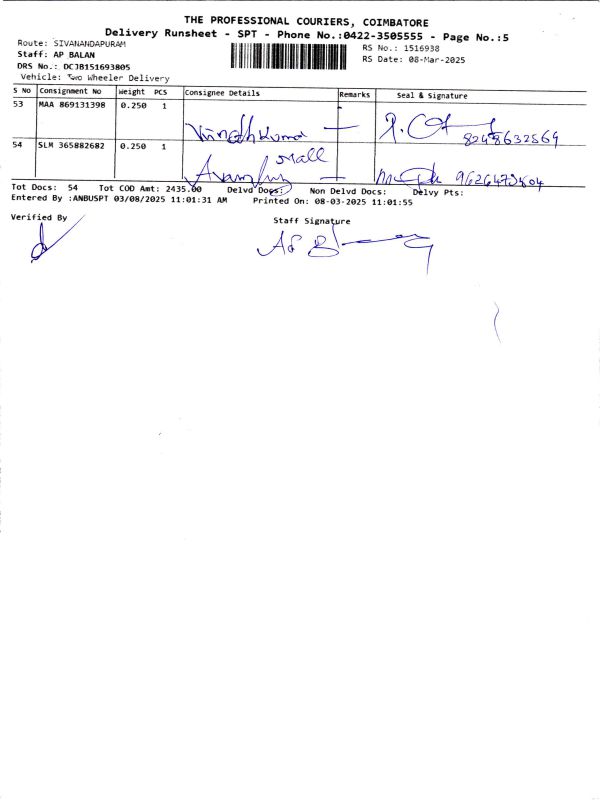 THE PROFESSIONAL COURIERS, COIMBATORE
Delivery Runsheet - SPT - Phone No.:0422-3505555 - Page No.:5
Route: SIVANANDAPURAM
Staff: AP BALAN
DRS No.: DCJB151693805
Vehicle: Two Wheeler Delivery
RS No.: 1516938
RS Date: 08-Mar-2025
S No Consignment No Weight PCS Consignee Details Remarks Seal & Signature
53 MAA 869131398 0.250 1
Vinoth Kumar — 8248632569
54 SLM 365882682 0.250 1
Mall
— 9626473804
Tot Docs: 54 Tot COD Amt: 2435.00 Delvd Docs: Non Delvd Docs: Delvy Pts:
Entered By :ANBUSPT 03/08/2025 11:01:31 AM Printed On: 08-03-2025 11:01:55
Verified By Staff Signature